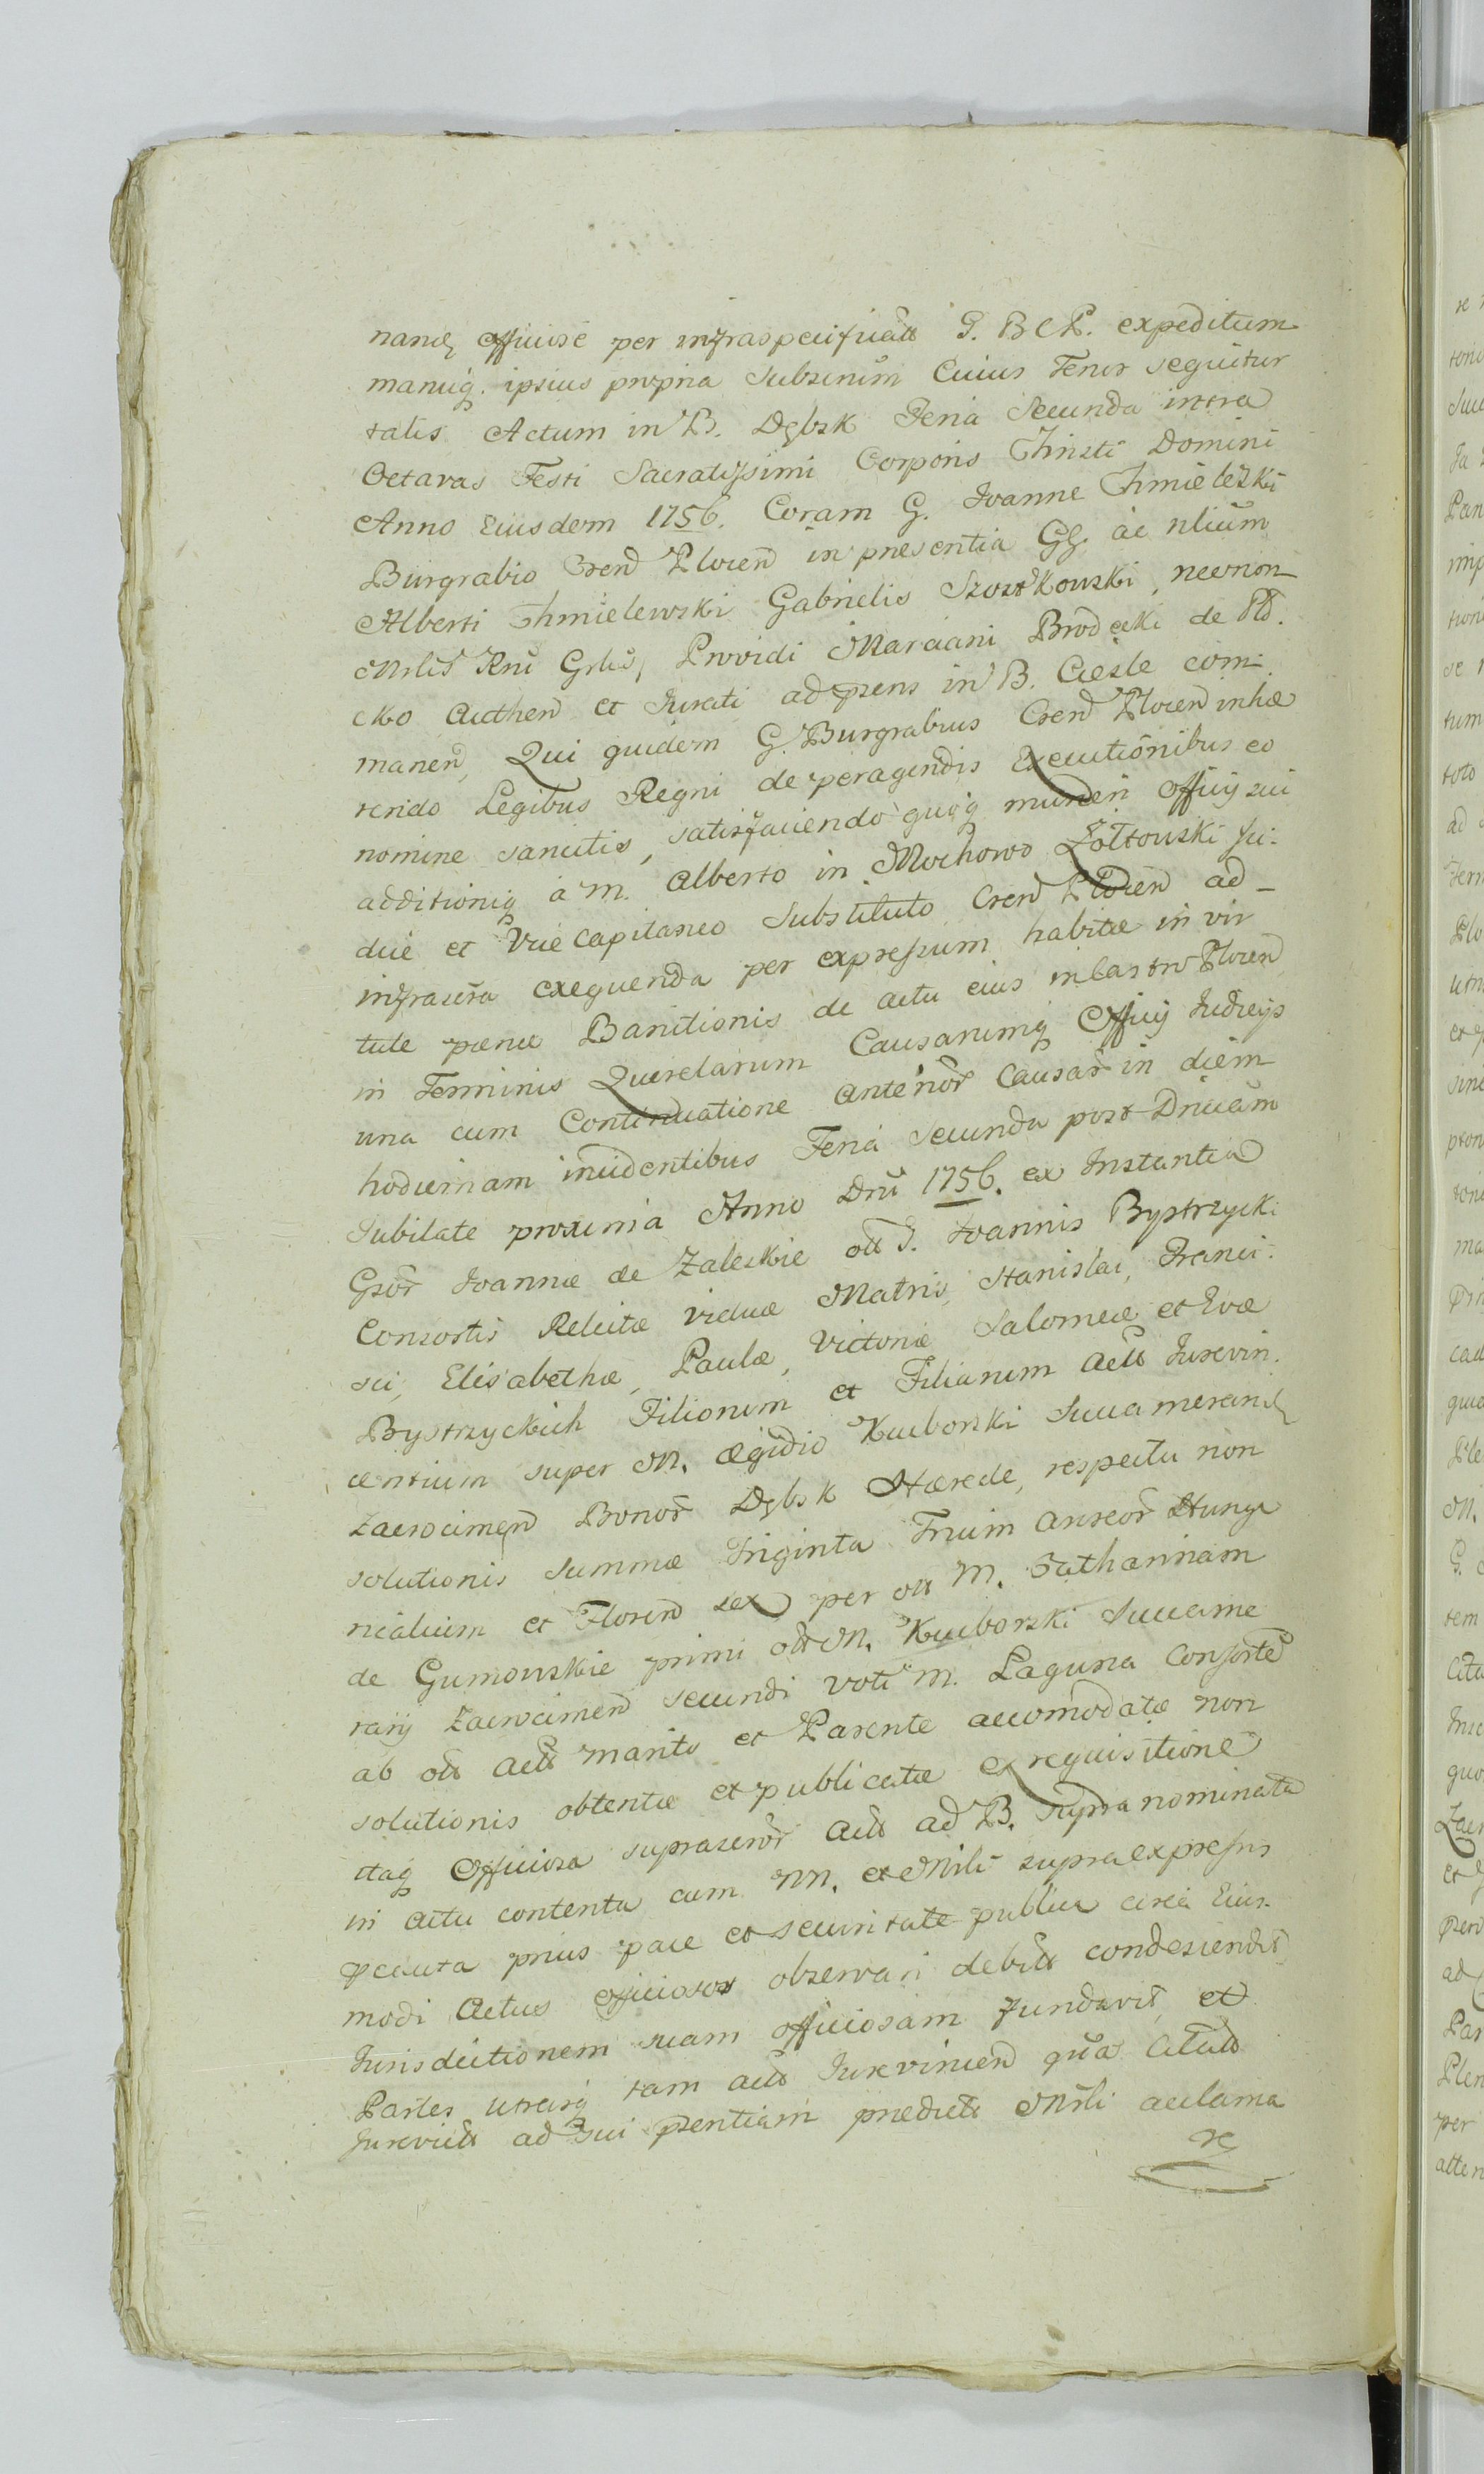 nandq officiose per infraspecificatt G. B C P. expeditum
manuiq. ipsius propria Subscriptum Cuius Tenor sequitur
talis Actum in B. Dębsk Feria Secunda intra
Octavas Festi Sacratissimi Corporis Christi Domini
Anno Eiusdem 1756. Coram G. Ioanne Chmieleski
Burgrabio Cren̄ Plocen̄ in presentia GG. ac nlium
Alberti Chmielewski Gabrielis Szostkowski, necnon
Mrlis Rni Grlis, Providi Marciani Brodęcki de Pło
cko Authen̄ et Jurati ad przns in B. Cieśle com:
manen̄, Qui quidem G. Burgrabius Cren̄ Plocen̄ inhæ
rendo Legibus Regni de peragendis Executionibus eo
nomine sancitis, satisfaciendo quoq muneri officij sui
additioniq a M. Alberto in Mochowo Zołtowski Ju:
dice et Vice Capitaneo Substituto Cren̄ Plocen̄ ad
infrascra exequenda per expressum habitæ in vir
tute pænæ Banitionis de actu eius in Castro Plocen̄
in Terminis Querelarum Causarumq Officij Iudicijs
una cum Continuatione anterior Causar in diem
hodiernam incidentibus Feria Secunda post Dnicam
Iubilate proxima Anno Dni 1756. ex Instantia
Gsor Ioannæ de Zaleskie olt G. Ioannis Bystrzycki
Consortis Relictæ viduæ Matris, Stanislai, Franci:
sci, Elisabethæ, Paulæ, Victoriæ Salomeæ et Evæ
Bystrzyckich Filiorum et Filiarum Actt Iurevin:
centium super M. Ægidio Kuiborski Succamerarid
Zacrocimen̄ Bonor Dębsk Hærede, respectu non
solutionis Summæ Triginta Trium aureor Hunga
ricalium et Floren̄ sex per olt M. Catharinam
de Gumowskie primi olt M. Kuiborski Succame
rarij Zacrocimen̄ secundi voti M. Laguna Consorte
ab olt Actt Marito et Parente accomodatæ non
solutionis obtentæ et publicatæ ex requisitione
itaq Officiosa suprascror Actt ad B. Supranominata
in actu contenta cum NN. et Mrli supraexpressis
pcauta prius pace et securitate publica circa Eius
modi Actus officiosos observari debitt condescendit
Iurisdictionem suam officiosam fundavit et
Partes utrasq tam Actt Iurevincen̄ qua Citatt
Iurevictt ad sui przentiam predictt Mrli acclama
re